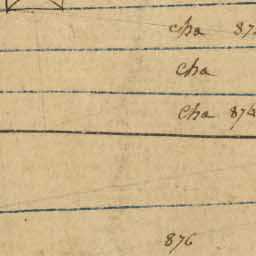 cha 87
cha
cha 874
876